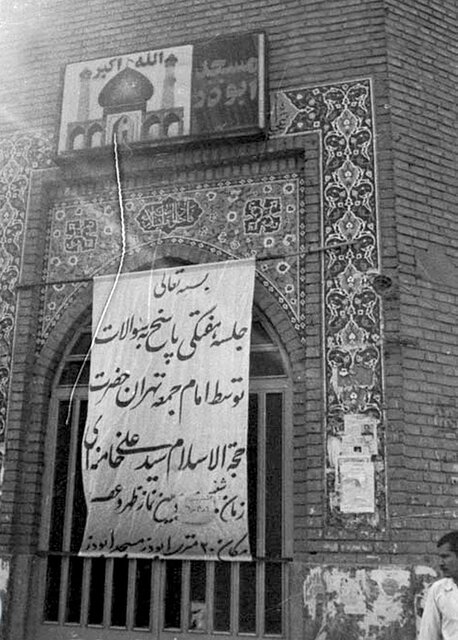 الله اکبر
مسجد
ابوذر
بسمه تعالی
جلسه هفتگی پاسخ بسؤالات
توسط امام جمعه تهران حضرت
حجة الاسلام سید علی خامنه‌ای
زمان: شنبه بین نماز ظهر و عصر
مکان: ۲۰ متری ابوذر مسجد ابوذر